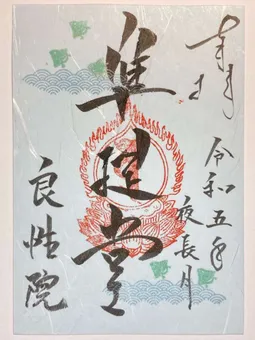 奉拝
令和五年
夜長月
準提堂
良性院